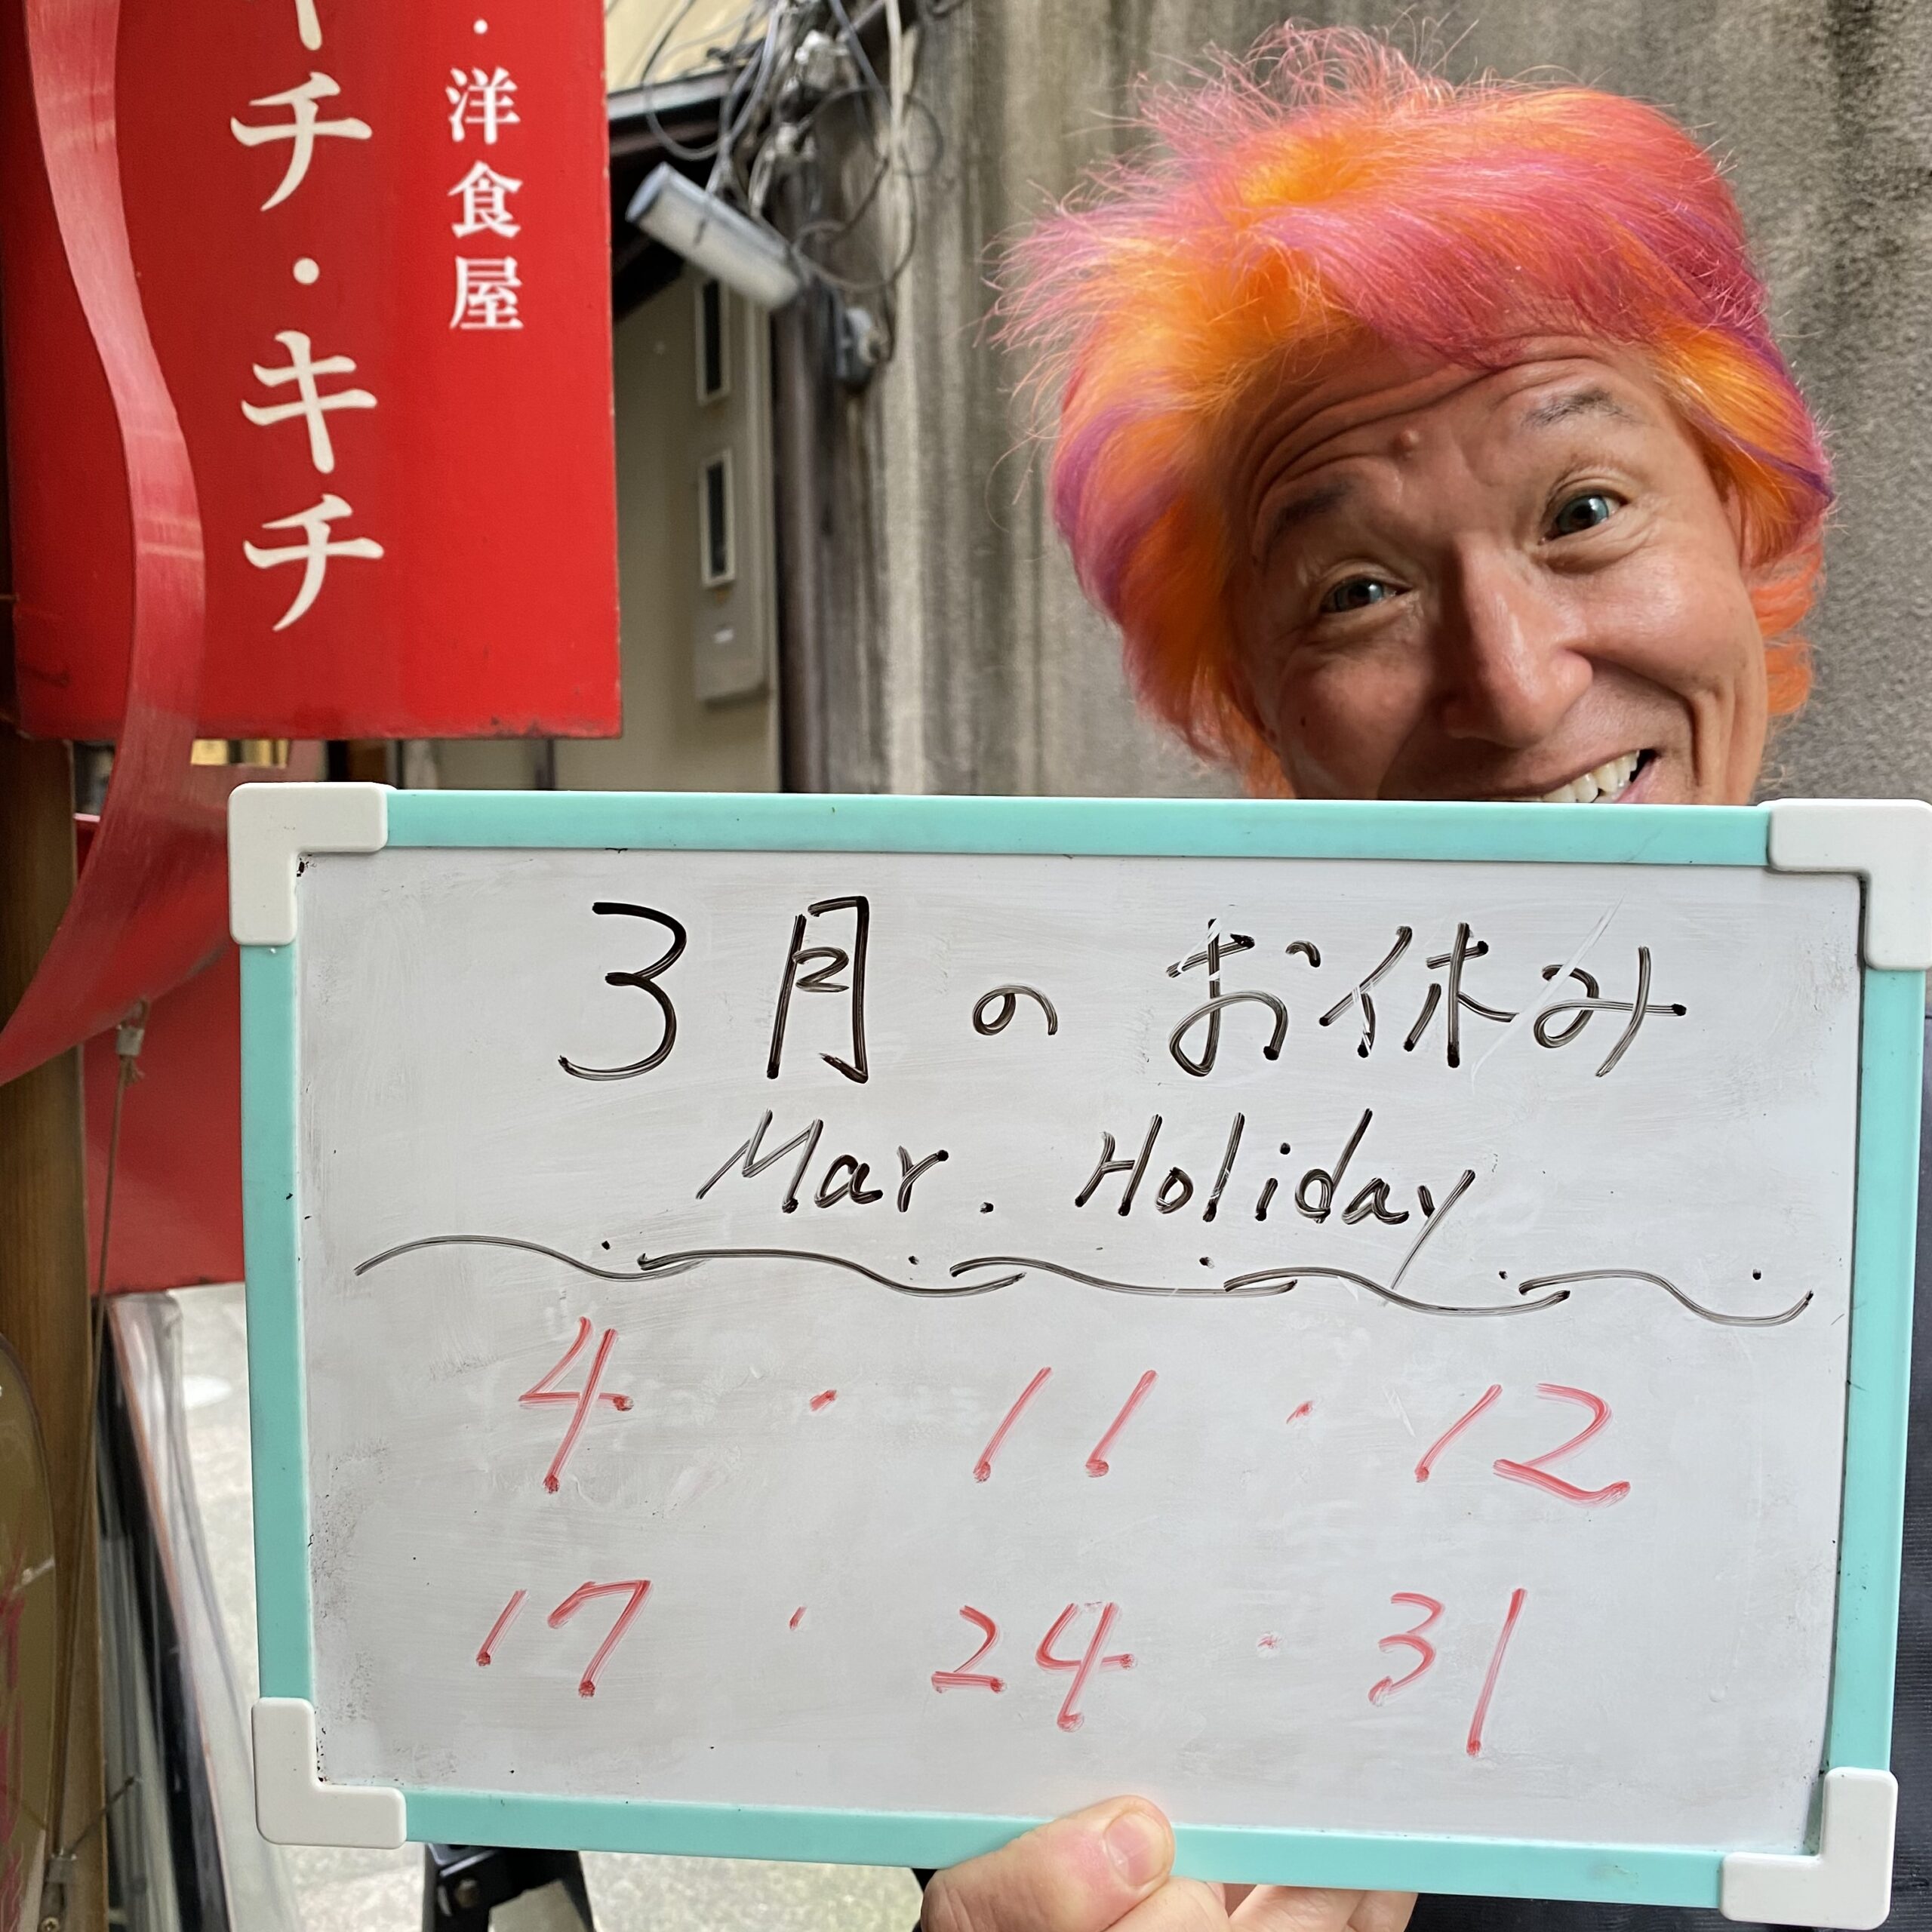 ・洋食屋
キチ・キチ
3月のお休み
Mar. Holiday
4・11・12
17・24・31